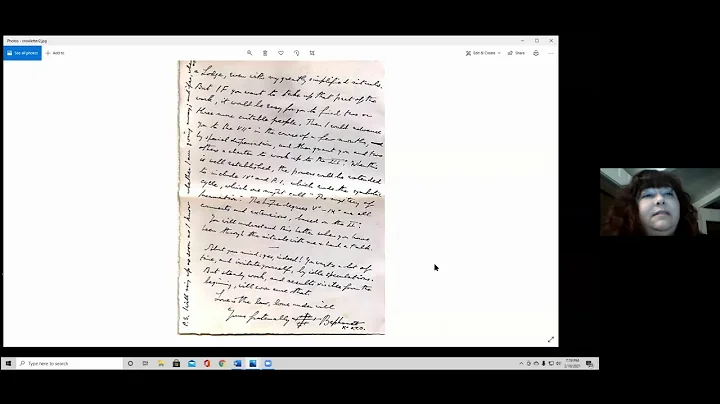 Photos - crowletter2.jpg
See all photos
Add to
Edit & Create
Share
a Lodge, even with my greatly simplified rituals.
But IF you want to take up that part of the
work, it would be easy for you to find two or
three more suitable people. Then I will advance
you to the VII° in the course of a few months,
by special dispensation, and then grant you and two
others a charter to work up to the III°. When this
is well established, the powers could be extended
to include IV° and P.I. which ends the symbolic
cycle, which one might call "The mystery of
Incarnation". The higher degrees V° - IX° are all
comments and extensions, based on the II°.
You will understand this letter when you have
been through the rituals with me & had a talk.
About your mind; yes, indeed! You waste a lot of
time, and irritate yourself, by idle speculations.
But steady work, and results visible from the
beginning, will soon cure that.
Love is the law, love under will
Yours fraternally Baphomet
P.S. I will ring up as soon as I know whether I am going away; and if so,
Type here to search
7:19 PM
2/19/2021